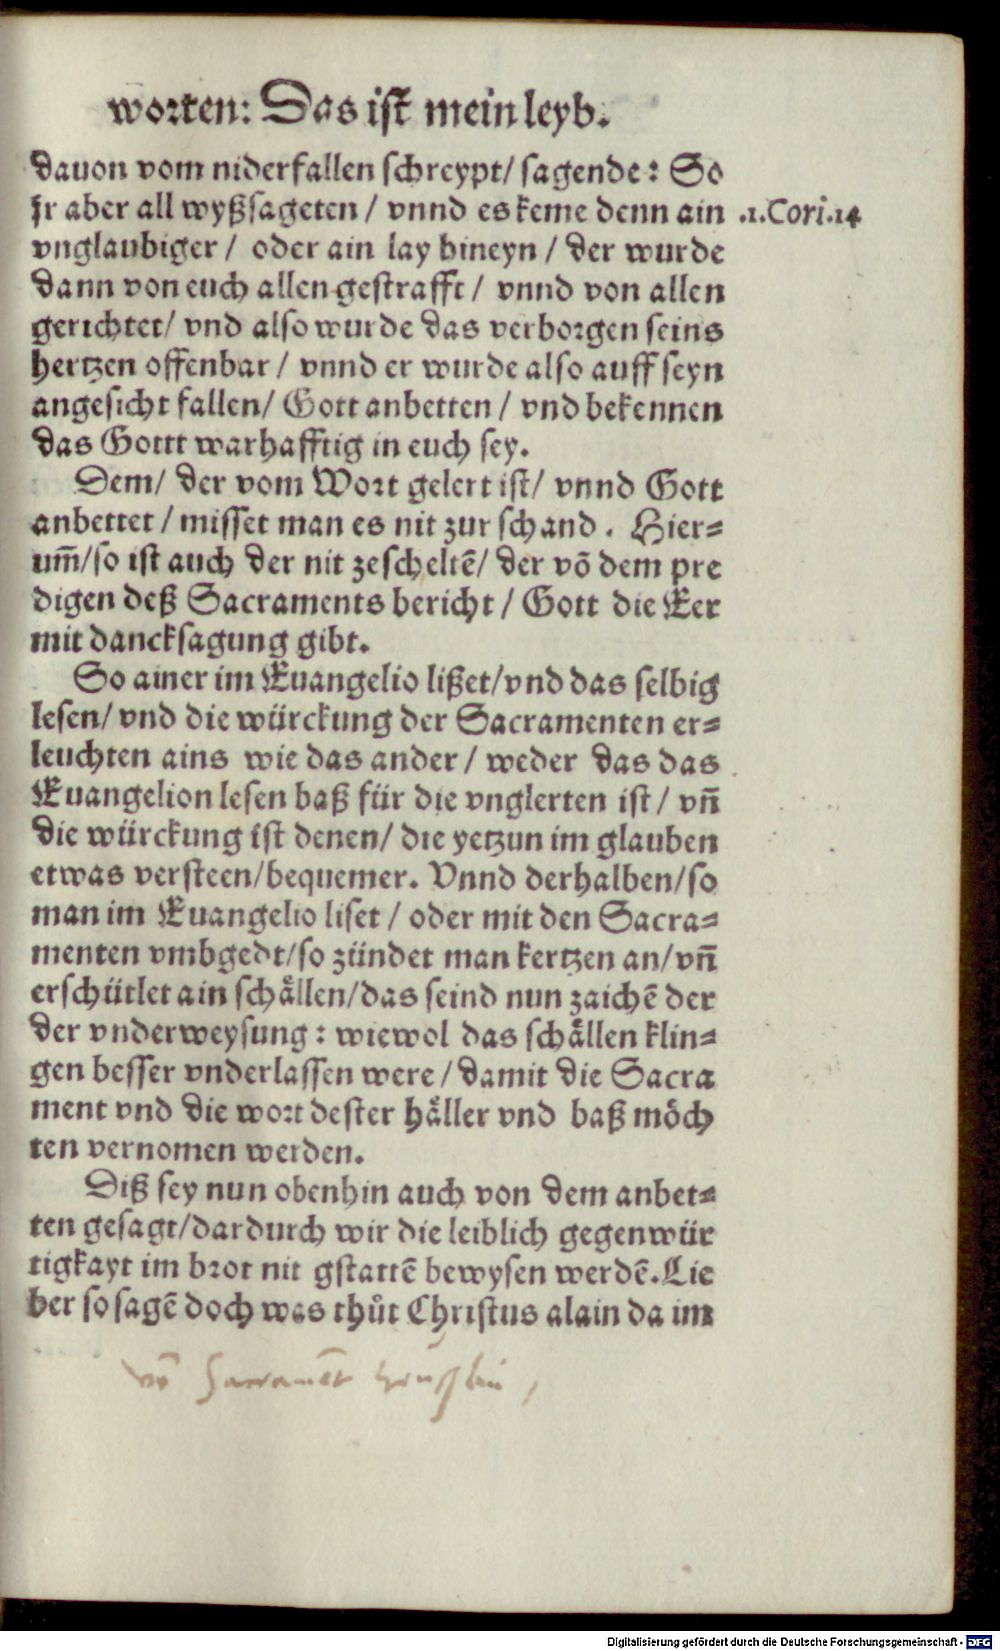 worten: Das ist mein leyb.
dauon vom niderfallen schreypt/ sagende: So
jr aber all wyßsageten / vnnd es keme denn ain .1.Cori.14
vnglaubiger / oder ain lay hineyn / der wurde
dann von euch allen gestrafft / vnnd von allen
gerichtet/ vnd also wurde das verborgen seins
hertzen offenbar / vnnd er wurde also auff seyn
angesicht fallen/ Gott anbetten / vnd bekennen
das Gottt warhafftig in euch sey.
Dem/ der vom Wort gelert ist/ vnnd Gott
anbettet / misset man es nit zur schand. Hier=
um̃/so ist auch der nit zescheltẽ/ der võ dem pre
digen deß Sacraments bericht / Gott die Eer
mit dancksagung gibt.
So ainer im Euangelio lißet/vnd das selbig
lesen/ vnd die würckung der Sacramenten er=
leuchten ains wie das ander / weder das das
Euangelion lesen baß für die vnglerten ist / vñ
die würckung ist denen/ die yetzun im glauben
etwas versteen/bequemer. Vnnd derhalben/so
man im Euangelio liset / oder mit den Sacra=
menten vmbgedt/so zündet man kertzen an/vñ
erschütlet ain schällen/das seind nun zaichẽ der
der vnderweysung: wiewol das schällen klin=
gen besser vnderlassen were / damit die Sacra
ment vnd die wort dester häller vnd baß möch
ten vernomen werden.
Diß sey nun obenhin auch von dem anbet=
ten gesagt/dardurch wir die leiblich gegenwür
tigkayt im brot nit gstattẽ bewysen werdẽ.Lie
ber so sagẽ doch was thůt Christus alain da im
Digitalisierung gefördert durch die Deutsche Forschungsgemeinschaft - DFG